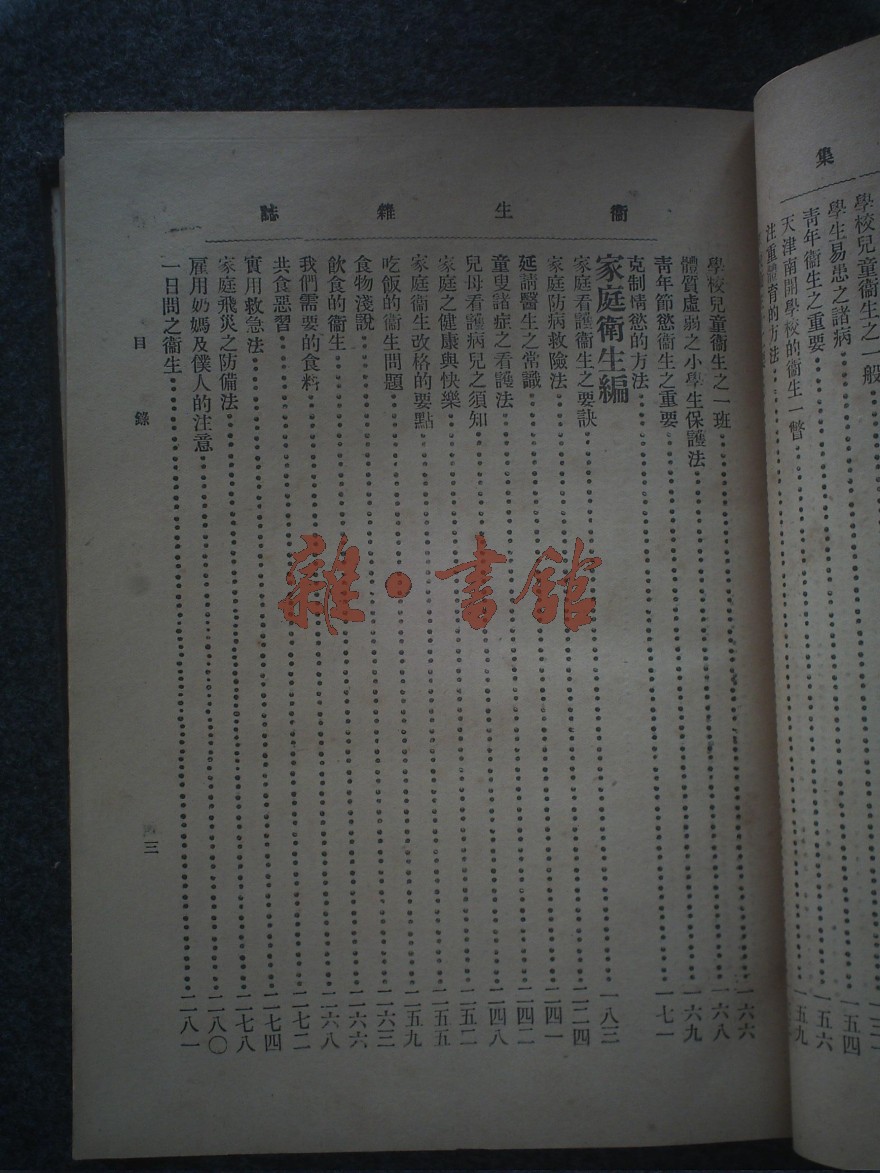 集
學校兒童衞生之一般
學生易患之諸病 一五四
青年衞生之重要 一五六
天津南開學校的衞生一瞥 一五九
注重體育的方法
衞生雜誌
學校兒童衞生之一班 一六六
體質虛弱之小學生保護法 一六八
青年節慾衞生之重要 一六九
克制情慾的方法 一七一
家庭衞生編
家庭看護衞生之要訣 一八三
家庭防病救險法 二二四
延請醫生之常識 二四一
童叟諸症之看護法 二四二
兒母看護病兒之須知 二四八
家庭之健康與快樂 二五二
家庭衞生改格的要點 二五五
吃飯的衞生問題 二五九
食物淺說 二六三
飲食的衞生 二六六
我們需要的食料 二六八
共食惡習 二七二
實用救急法 二七四
家庭飛災之防備法 二七八
雇用奶媽及僕人的注意 二八〇
一日間之衞生 二八一
目錄
三
雜·書館